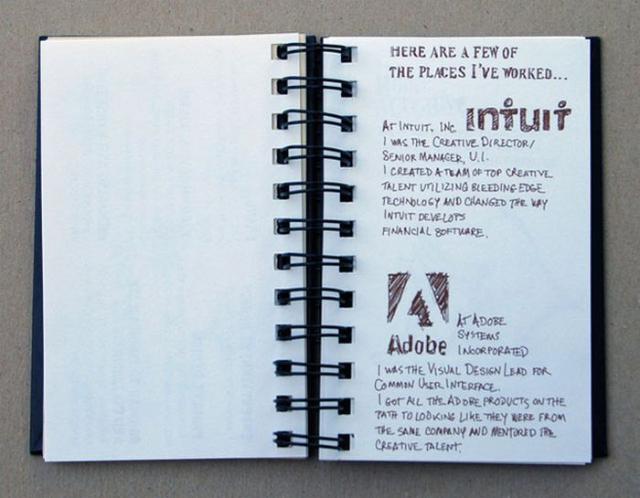 HERE ARE A FEW OF
THE PLACES I'VE WORKED...
INTUIT
AT INTUIT, INC.
I WAS THE CREATIVE DIRECTOR/
SENIOR MANAGER, U.I.
I CREATED A TEAM OF TOP CREATIVE
TALENT UTILIZING BLEEDING EDGE
TECHNOLOGY AND CHANGED THE WAY
INTUIT DEVELOPS
FINANCIAL SOFTWARE.
Adobe
AT ADOBE
SYSTEMS
INCORPORATED
I WAS THE VISUAL DESIGN LEAD FOR
COMMON USER INTERFACE.
I GOT ALL THE ADOBE PRODUCTS ON THE
PATH TO LOOKING LIKE THEY WERE FROM
THE SAME COMPANY AND MENTORED THE
CREATIVE TALENT.